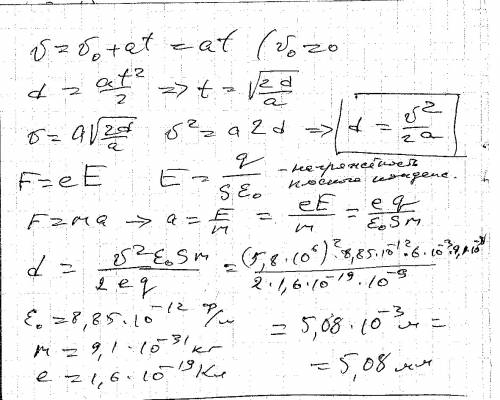 v = v₀ + at = at (v₀ = 0
d = at²/2 => t = √(2d/a)
v = a√(2d/a) v² = a2d => d = v²/2a
F = eE E = q/Sε₀ - напряжённость плоского конденс.
F = ma → a = F/m = eE/m = eq/ε₀Sm
d = v²ε₀Sm/2eq = (5,8·10⁶)²·8,85·10⁻¹²·6·10⁻³·9,1·10⁻³¹/2·1,6·10⁻¹⁹·10⁻⁹
ε₀ = 8,85·10⁻¹² ф/м = 5,08·10⁻³ м =
m = 9,1·10⁻³¹ кг
e = 1,6·10⁻¹⁹ Кл = 5,08 мм